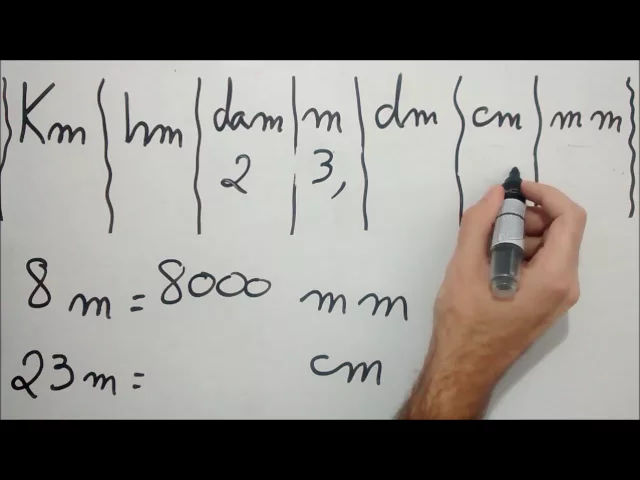 Km hm dam m dm cm mm
2 3,
8 m = 8000 mm
23 m = cm